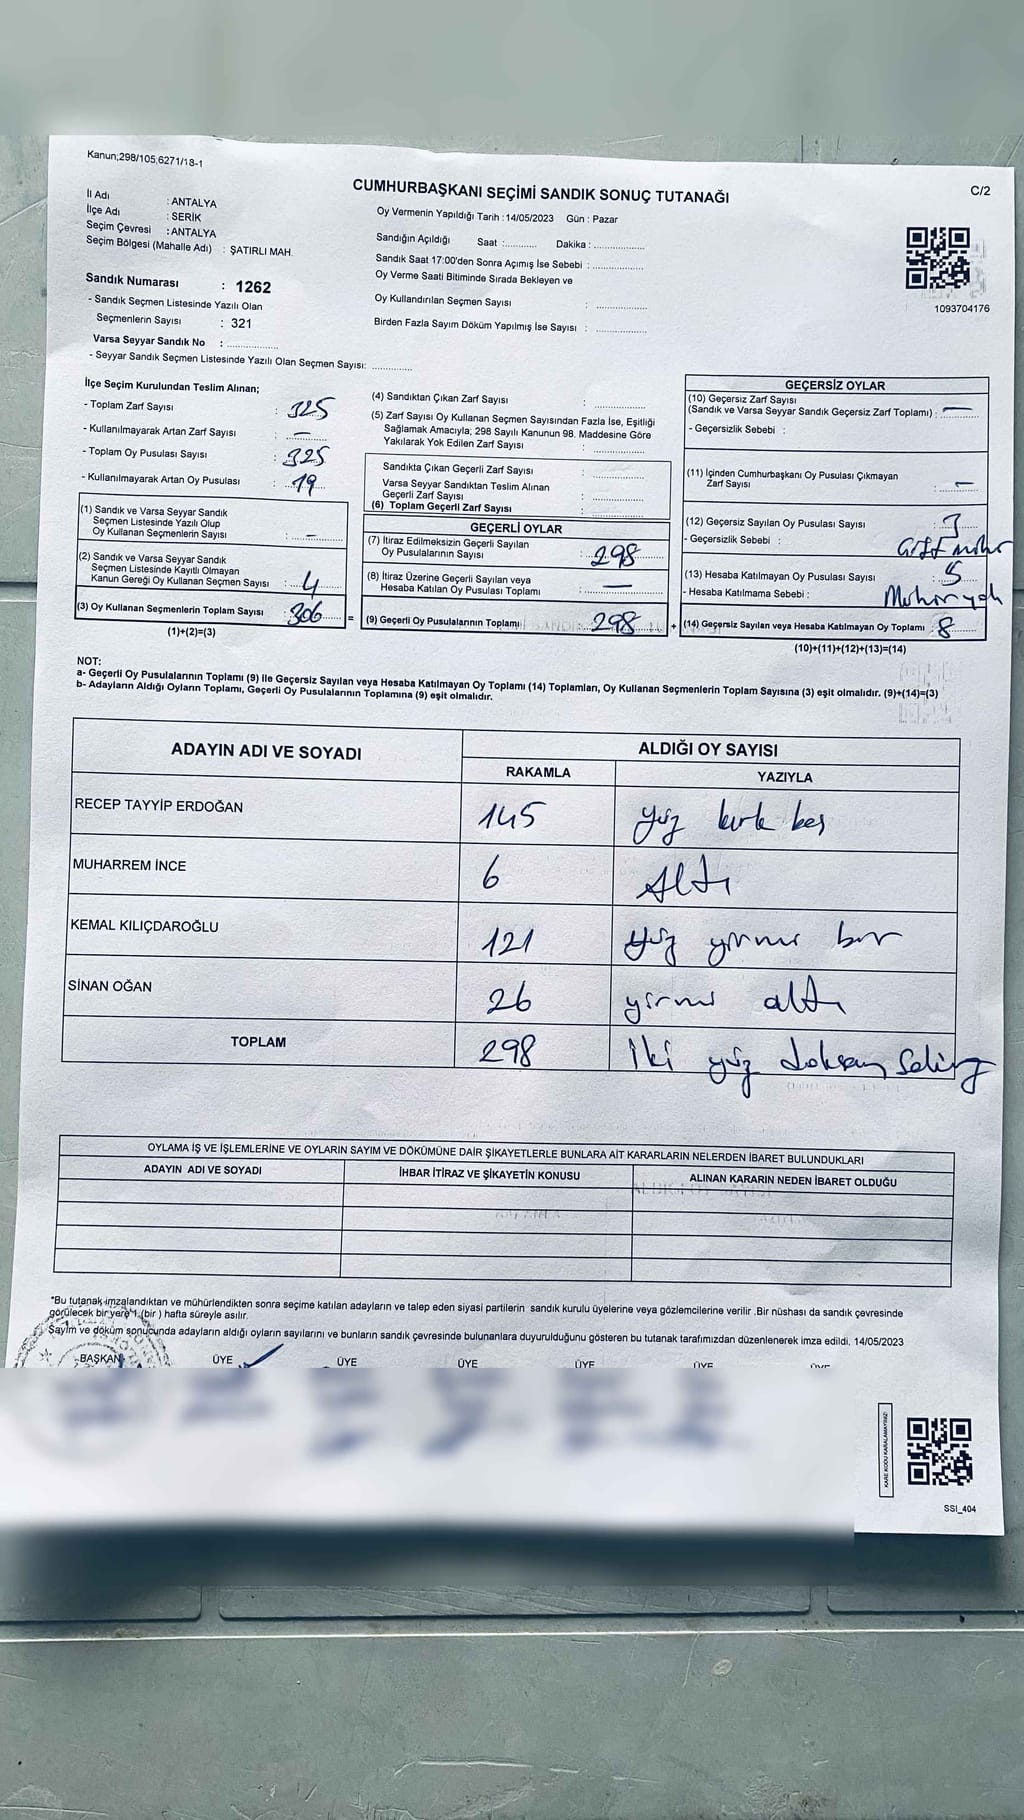 Kanun;298/105,6271/18-1
CUMHURBAŞKANI SEÇİMİ SANDIK SONUÇ TUTANAĞI
C/2
İl Adı : ANTALYA
İlçe Adı : SERİK
Seçim Çevresi : ANTALYA
Seçim Bölgesi (Mahalle Adı) : ŞATIRLI MAH.
Oy Vermenin Yapıldığı Tarih : 14/05/2023 Gün : Pazar
Sandığın Açıldığı Saat :........... Dakika :................
Sandık Saat 17:00'den Sonra Açımış İse Sebebi :................
Oy Verme Saati Bitiminde Sırada Bekleyen ve
Oy Kullandırılan Seçmen Sayısı : ................
Birden Fazla Sayım Döküm Yapılmış İse Sayısı : ................
1093704176
Sandık Numarası : 1262
- Sandık Seçmen Listesinde Yazılı Olan
Seçmenlerin Sayısı : 321
Varsa Seyyar Sandık No : ................
- Seyyar Sandık Seçmen Listesinde Yazılı Olan Seçmen Sayısı: .............
İlçe Seçim Kurulundan Teslim Alınan;
- Toplam Zarf Sayısı : 325
- Kullanılmayarak Artan Zarf Sayısı : –
- Toplam Oy Pusulası Sayısı : 325
- Kullanılmayarak Artan Oy Pusulası : 19
(1) Sandık ve Varsa Seyyar Sandık
Seçmen Listesinde Yazılı Olup
Oy Kullanan Seçmenlerin Sayısı : –
(2) Sandık ve Varsa Seyyar Sandık
Seçmen Listesinde Kayıtlı Olmayan
Kanun Gereği Oy Kullanan Seçmen Sayısı : 4
(3) Oy Kullanan Seçmenlerin Toplam Sayısı : 306 =
(1)+(2)=(3)
(4) Sandıktan Çıkan Zarf Sayısı : ................
(5) Zarf Sayısı Oy Kullanan Seçmen Sayısından Fazla İse, Eşitliği
Sağlamak Amacıyla; 298 Sayılı Kanunun 98. Maddesine Göre
Yakılarak Yok Edilen Zarf Sayısı : ................
Sandıkta Çıkan Geçerli Zarf Sayısı : ................
Varsa Seyyar Sandıktan Teslim Alınan
Geçerli Zarf Sayısı : ................
(6) Toplam Geçerli Zarf Sayısı : ................
GEÇERLİ OYLAR
(7) İtiraz Edilmeksizin Geçerli Sayılan
Oy Pusulalarının Sayısı : 298
(8) İtiraz Üzerine Geçerli Sayılan veya
Hesaba Katılan Oy Pusulası Toplamı : —
(9) Geçerli Oy Pusulalarının Toplamı 298 +
GEÇERSİZ OYLAR
(10) Geçersiz Zarf Sayısı
(Sandık ve Varsa Seyyar Sandık Geçersiz Zarf Toplamı) : —
- Geçersizlik Sebebi :
(11) İçinden Cumhurbaşkanı Oy Pusulası Çıkmayan
Zarf Sayısı : –
(12) Geçersiz Sayılan Oy Pusulası Sayısı : 3
- Geçersizlik Sebebi : Çift mühr
(13) Hesaba Katılmayan Oy Pusulası Sayısı : 5
- Hesaba Katılmama Sebebi :
(14) Geçersiz Sayılan veya Hesaba Katılmayan Oy Toplamı 8
(10)+(11)+(12)+(13)=(14)
NOT:
a- Geçerli Oy Pusulalarının Toplamı (9) ile Geçersiz Sayılan veya Hesaba Katılmayan Oy Toplamı (14) Toplamları, Oy Kullanan Seçmenlerin Toplam Sayısına (3) eşit olmalıdır. (9)+(14)=(3)
b- Adayların Aldığı Oyların Toplamı, Geçerli Oy Pusulalarının Toplamına (9) eşit olmalıdır.
ADAYIN ADI VE SOYADI
ALDIĞI OY SAYISI
RAKAMLA YAZIYLA
RECEP TAYYİP ERDOĞAN 145 yüz kırk beş
MUHARREM İNCE 6 Altı
KEMAL KILIÇDAROĞLU 121 yüz yirmi bir
SİNAN OĞAN 26 yirmi altı
TOPLAM 298 iki yüz doksan sekiz
OYLAMA İŞ VE İŞLEMLERİNE VE OYLARIN SAYIM VE DÖKÜMÜNE DAİR ŞİKAYETLERLE BUNLARA AİT KARARLARIN NELERDEN İBARET BULUNDUKLARI
ADAYIN ADI VE SOYADI İHBAR İTİRAZ VE ŞİKAYETİN KONUSU ALINAN KARARIN NEDEN İBARET OLDUĞU
*Bu tutanak imzalandıktan ve mühürlendikten sonra seçime katılan adayların ve talep eden siyasi partilerin sandık kurulu üyelerine veya gözlemcilerine verilir .Bir nüshası da sandık çevresinde
görülecek bir yere 1 (bir ) hafta süreyle asılır.
Sayım ve döküm sonucunda adayların aldığı oyların sayılarını ve bunların sandık çevresinde bulunanlara duyurulduğunu gösteren bu tutanak tarafımızdan düzenlenerek imza edildi. 14/05/2023
BAŞKAN ÜYE ÜYE ÜYE ÜYE ÜYE ÜYE
KARE KODU KARALAMAYINIZ!
SSI_404